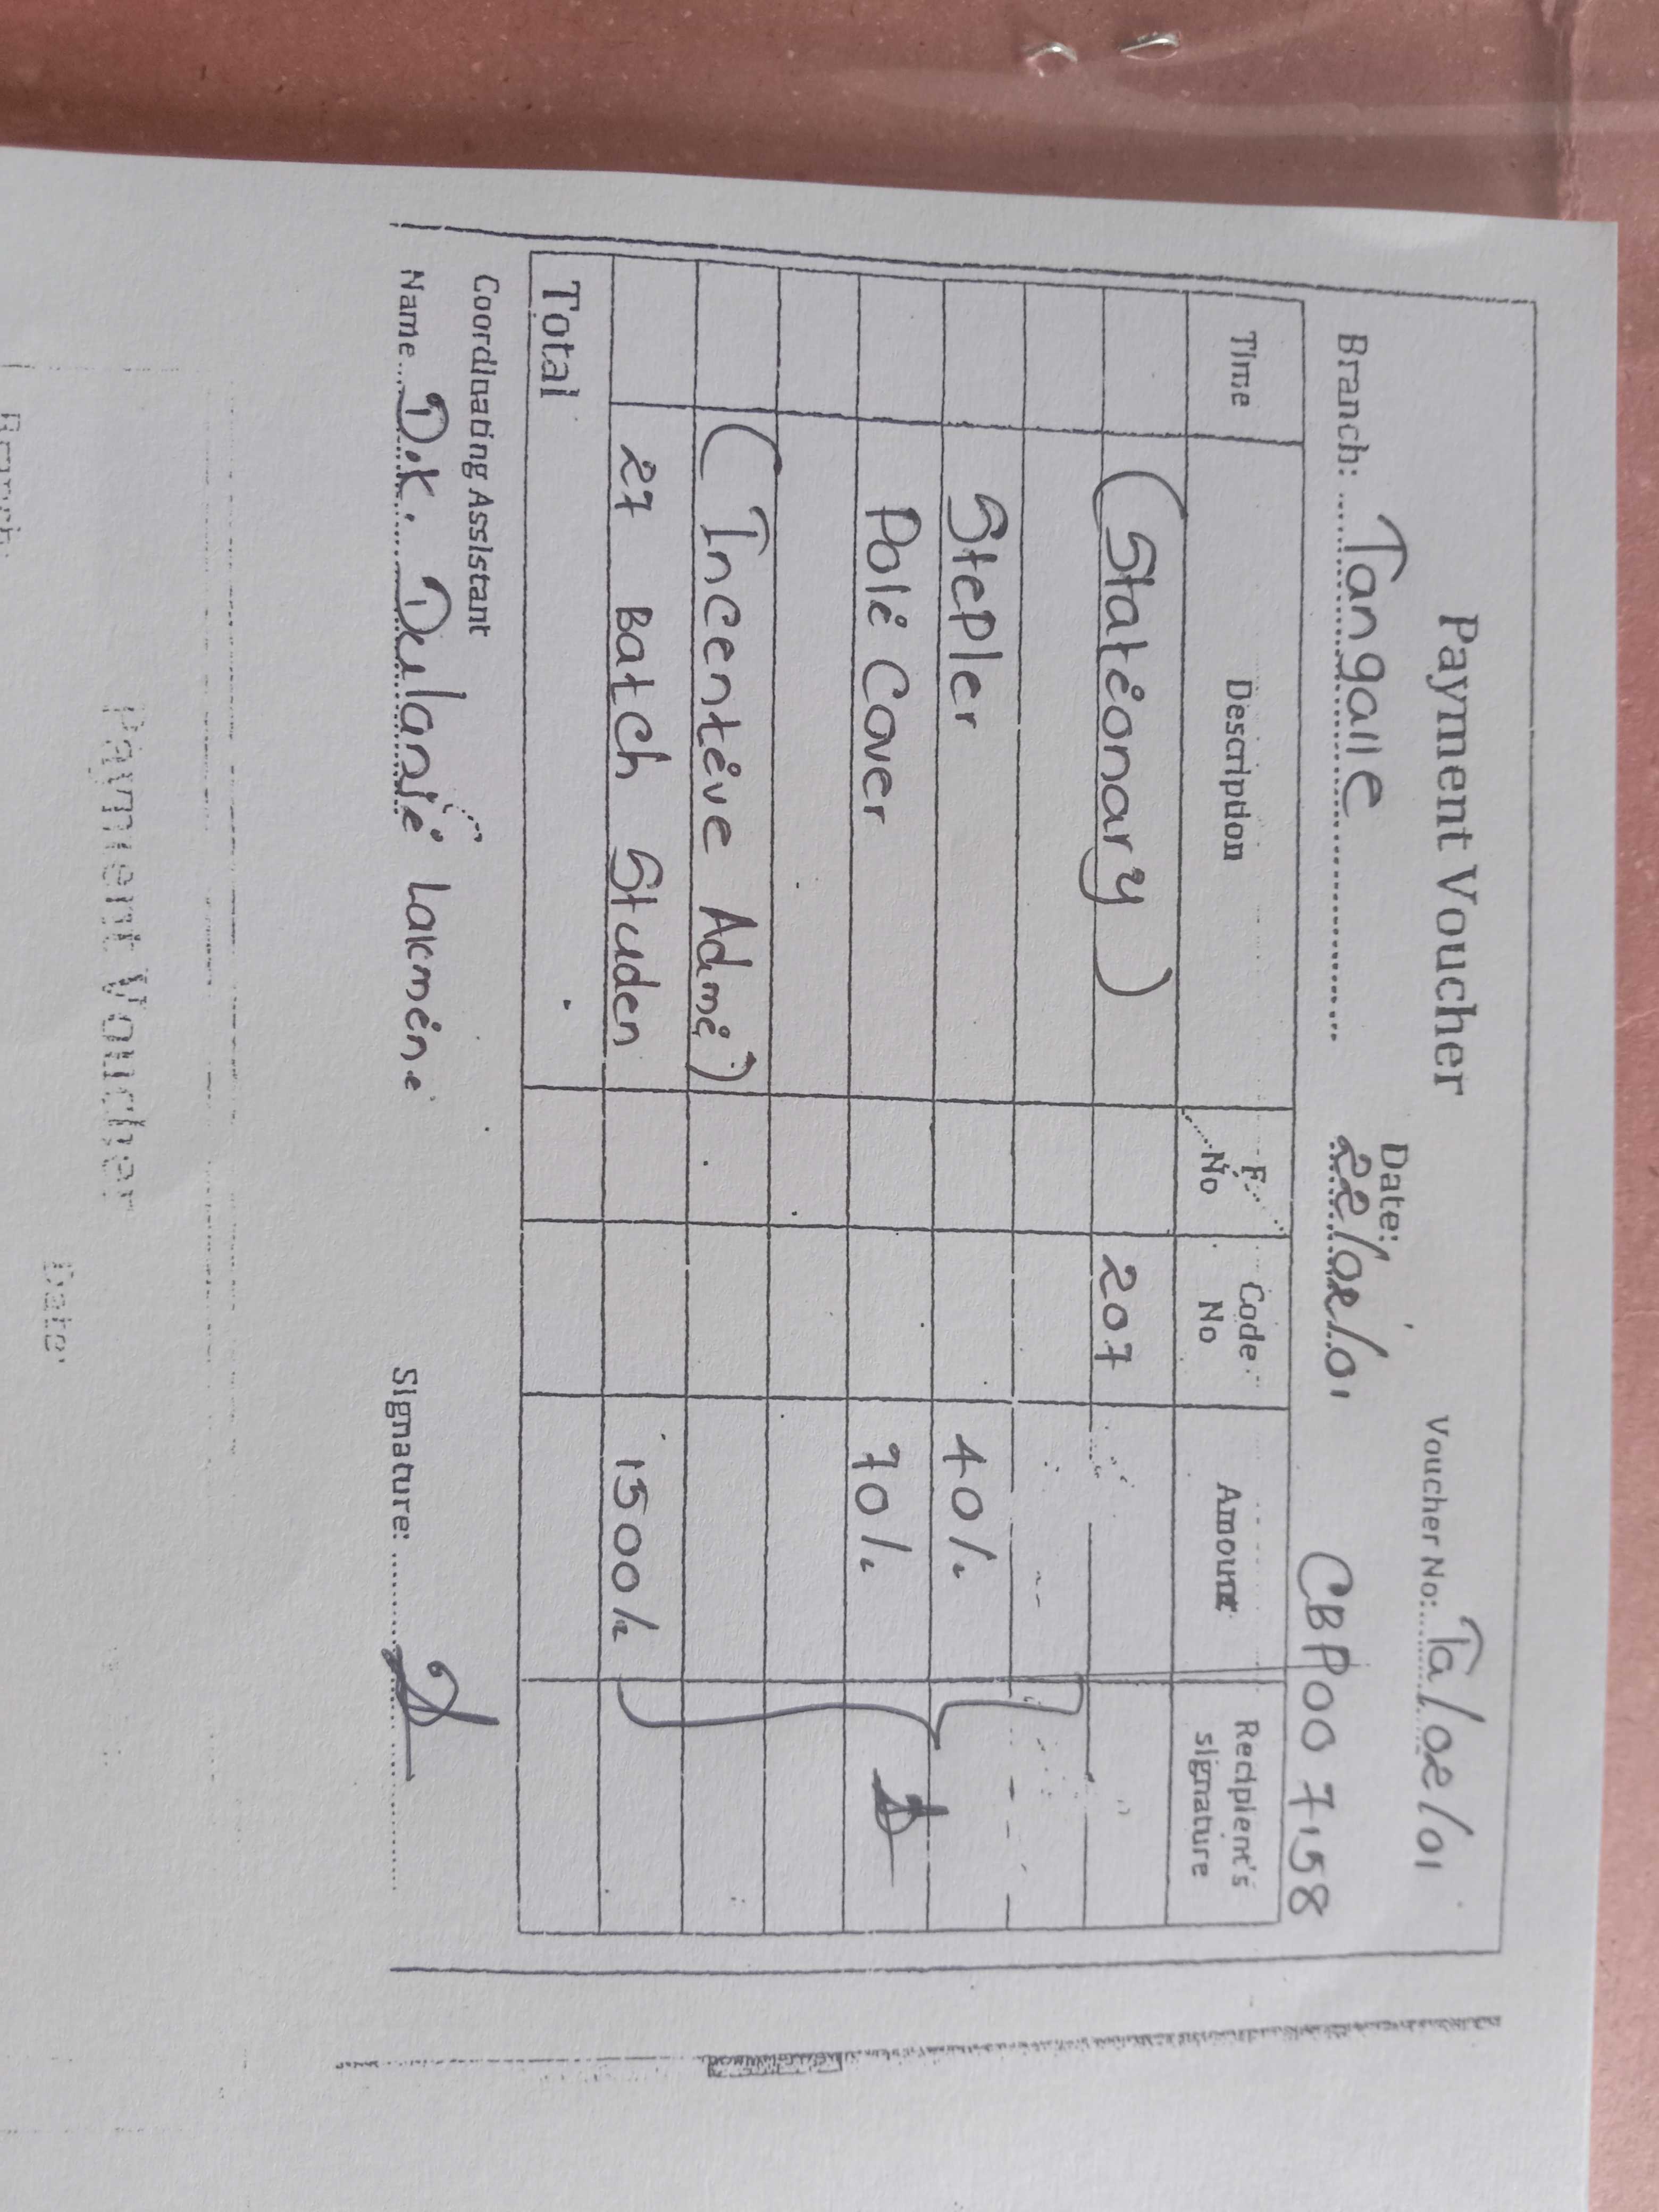 Payment Voucher
Voucher No: Ta/02/01
Branch: Tangalle
Date: 22/02/01
CBP00 7158
Time Description F. No Code No Amount Recipient's signature
(Stationary) 207
Stepler 40/-
Poli Cover 70/-
(Incentive Admi)
27 Batch Studen 1500/-
Total
Coordinating Assistant
Name D.K. Dulanji Lakmini
Signature:
Payment Voucher
Date:
Branch: